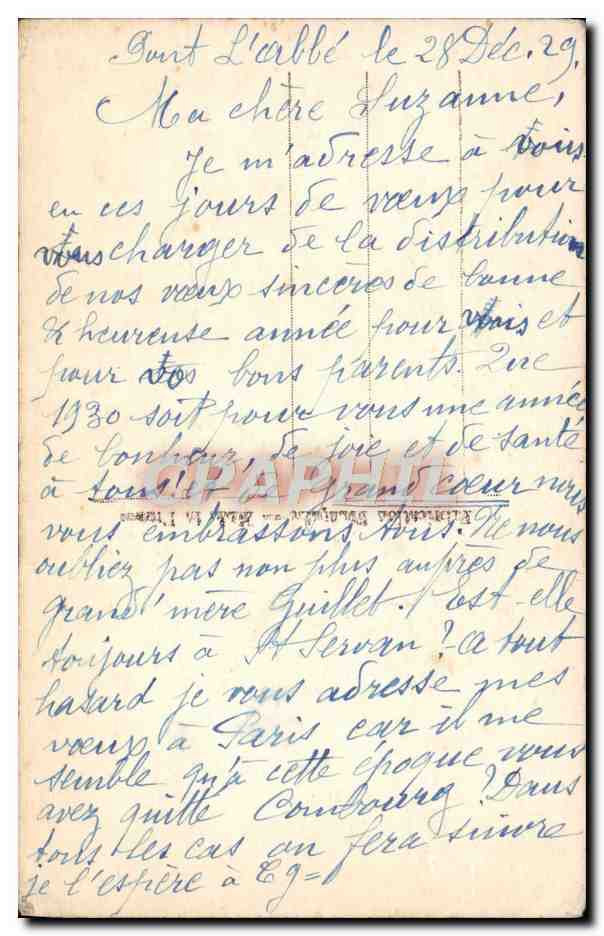 Pont L'abbé le 28 Déc. 29.
Ma chère Suzanne,
Je m'adresse à vous
en ces jours de vœux pour
vous charger de la distribution
de nos vœux sincères de bonne
& heureuse année pour vous et
pour vos bons parents. Que
1930 soit pour vous une année
de bonheur, de joie et de santé
à tous! et de grand cœur nous
vous embrassons tous. Ne nous
oubliez pas non plus auprès de
grand'mère Guillet. Est-elle
toujours à St Servan? - A tout
hasard je vous adresse mes
vœux à Paris car il me
semble qu'à cette époque vous
avez quitté Combourg? Dans
tous les cas on fera suivre
je l'espère à
CPAPHIL